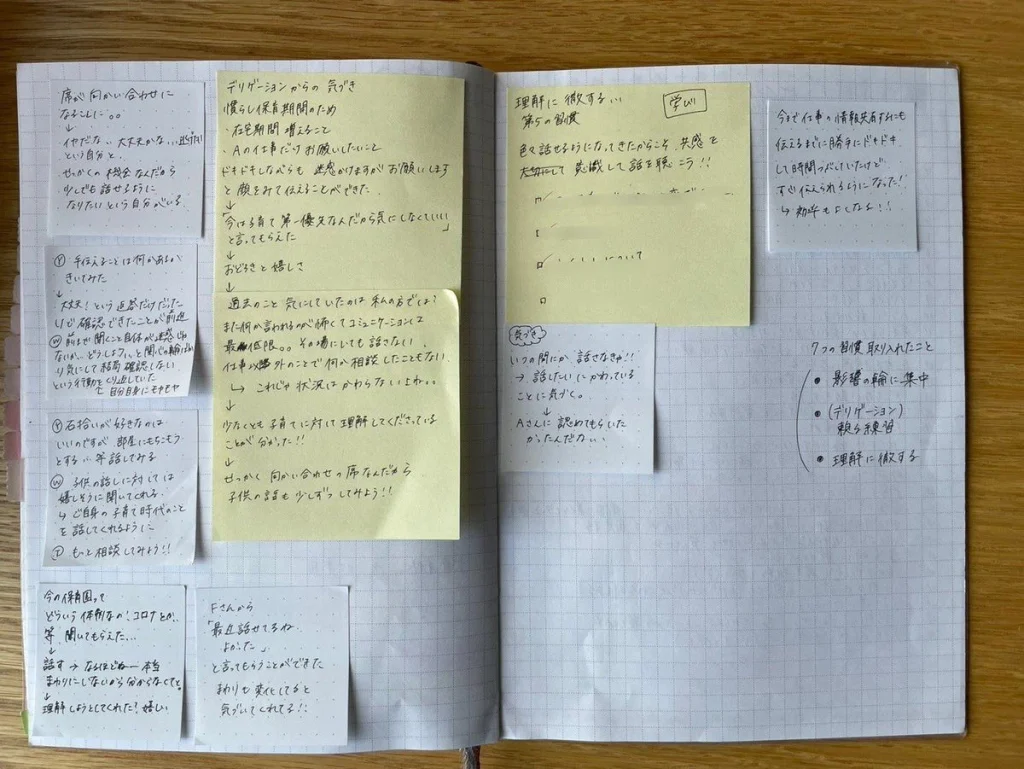 席が向かい合わせに
なることに。。
↓
イヤだな… 大丈夫かな… 逃げたい
という自分と、
せっかくの機会なんだから
少しでも話せるように
なりたいという自分がいる。
Ⓨ 手伝えることは何かあるか
きいてみた
↓
大丈夫!という返答だけだった
けど確認できたことが前進
Ⓦ 前まで聞くこと自体が迷惑
ないか、どうしよう、と関心の輪
り気にして結局確認しない
という行動をくり返していた
自分自身にモヤモヤ
Ⓨ 石拾いが好きなのは
いいのですが 部屋にもちこもう
とする… 等話してみる
Ⓦ 子供の話しに対しては
嬉しそうに聞いてくれる
↳ ご自身の子育て時代のこと
を話してくれるように
Ⓣ もっと相談してみよう!!
今の保育園って
どういう体制なの?コロナとか、
等 聞いてもらえた...
↓
話す → なるほどねー 本当
まわりにいないから分からなくてと。
↓
理解しようとしてくれた!嬉しい
Fさんから
「最近話せてるね
よかった」
と言ってもらうことができた
まわりも変化してると
気づいてくれてる!!
デリゲーションからの 気づき
慣らし保育期間のため
・在宅期間 増えること
・Aの仕事だけお願いしたいこと
ドキドキしながらも 迷惑かけますがお願いします
と顔をみて伝えることができた
↓
「今は子育て 第一優先なんだから気にしなくていい」
と言ってもらえた
↓
おどろきと嬉しさ
↓
過去のこと 気にしていたのは 私の方では?
また何か言われるのが怖くてコミュニケーションは
最低限。。その場にいても話さない
仕事以外のことで何か相談したこともない
↳ これじゃ状況はかわらないよね。。
↓
少なくとも子育てに対して理解してくださっている
ことが分かった!!
↓
せっかく向かい合わせの席なんだから
子供の話も少しずつしてみよう!!
理解に徹する… 学び
第5の習慣
色々話せるようになってきたからこそ 共感を
大切にして 意識して話を聴こう!!
について
気づき
いつの間にか 話さなきゃ!!
→ 話したいにかわっている
ことに気づく。
↓
Aさんに認めてもらいた
かったんだな…
今まで仕事の情報共有するにも
伝えるまでに勝手にドキドキ
して時間つぶしていたけど
すぐ伝えられるようになった!
↳ 効率もよくなる!!
7つの習慣 取り入れたこと
● 影響の輪に集中
● (デリゲーション)
頼る練習
● 理解に徹する